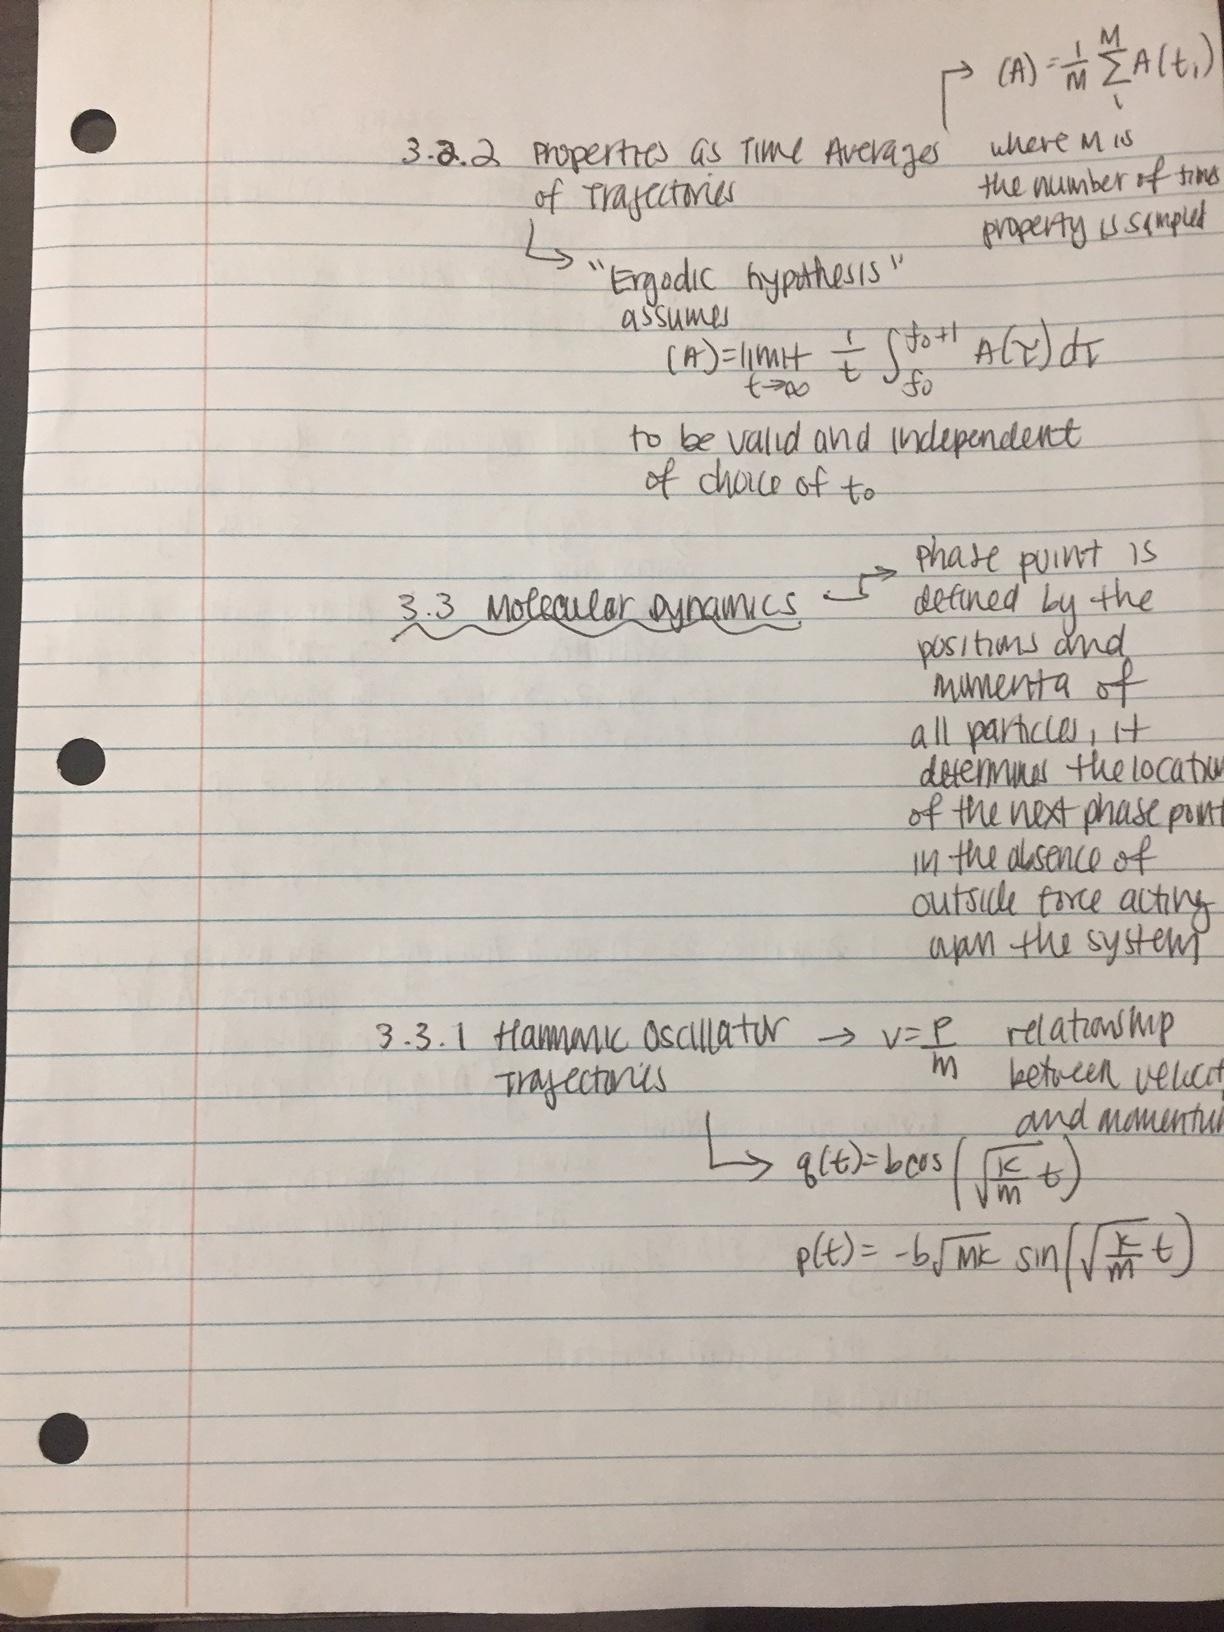 (A) = 1/M Σ_i^M A(t_i)
3.2.2 Properties as Time Averages
of Trajectories
where M is
the number of times
property is sampled
"Ergodic hypothesis"
assumes
(A) = limit_{t→∞} 1/t ∫_{t0}^{t0+1} A(τ) dτ
to be valid and independent
of choice of t0
3.3 Molecular Dynamics
phase point is
defined by the
positions and
momenta of
all particles, it
determines the location
of the next phase point
in the absence of
outside force acting
upon the system
3.3.1 Harmonic Oscillator
Trajectories
→ v = p/m
relationship
between velocit
and momentu
q(t) = b cos(√(k/m) t)
p(t) = -b√mk sin(√(k/m) t)